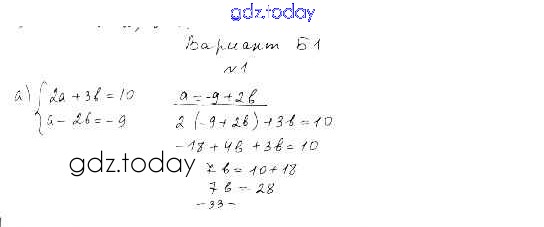 gdz.today
Вариант Б1
№1
а) { 2a + 3b = 10 a = -9 + 2b
a - 2b = -9 2(-9 + 2b) + 3b = 10
-18 + 4b + 3b = 10
gdz.today 7b = 10 + 18
7b = 28
- 33 -